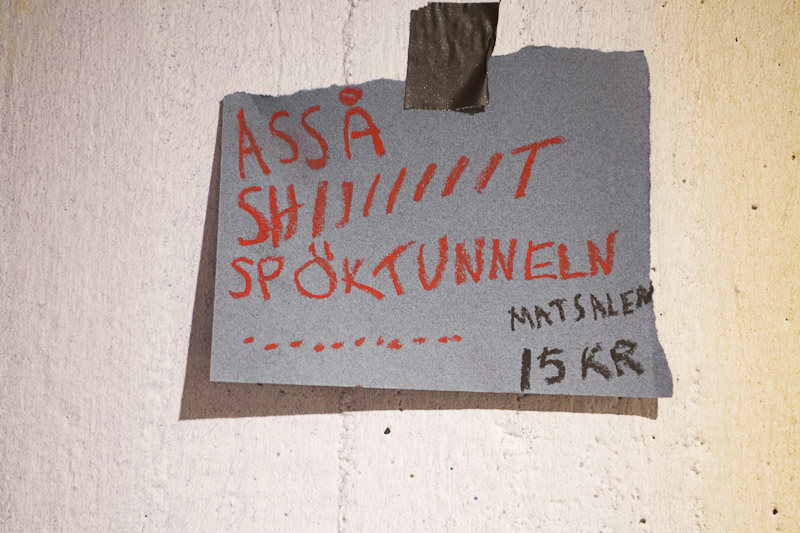 ASSÅ
SHIIIIIIIT
SPÖKTUNNELN
MATSALEN
............
15 KR